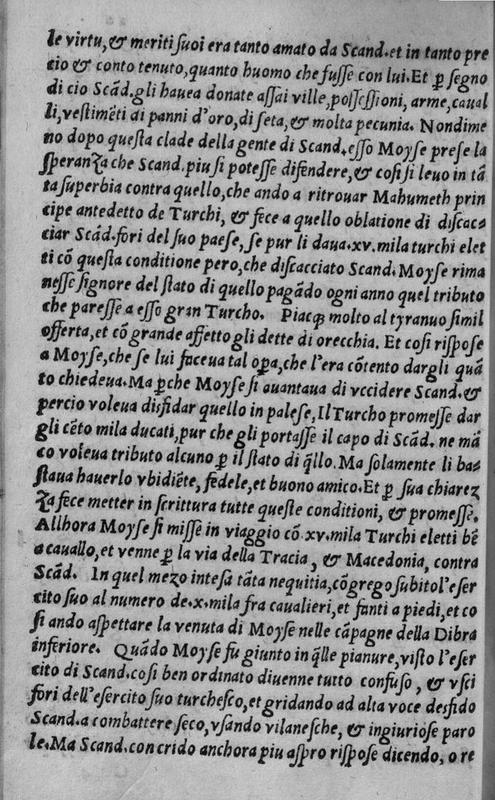 le virtu, & meriti suoi era tanto amato da Scand. et in tanto pre
cio & conto tenuto, quanto huomo che fusse con lui. Et ꝑ segno
di cio Scãd. gli hauea donate assai ville, possessioni, arme, caual
li, vestimẽti di panni d'oro, di seta, & molta pecunia. Nondime
no dopo questa clade della gente di Scand. esso Moyse prese la
speranza che Scand. piu si potesse difendere, & cosi si leuo in tã
ta superbia contra quello, che ando a ritrouar Mahumeth prin
cipe antedetto de Turchi, & fece a quello oblatione di discac=
ciar Scãd. fori del suo paese, se pur li daua .xv. mila turchi elet
ti cõ questa conditione pero, che discacciato Scand. Moyse rima
nesse signore del stato di quello pagãdo ogni anno quel tributo
che paresse a esso gran Turcho. Piacq̃ molto al tyranuo simil
offerta, et cõ grande affetto gli dette di orecchia. Et cosi rispose
a Moyse, che se lui faceua tal oꝑa, che l'era cõtento dargli quã
to chiedeua. Ma ꝑche Moyse si auantaua di vccidere Scand. &
percio voleua disfidar quello in palese, Il Turcho promesse dar
gli cẽto mila ducati, pur che gli portasse il capo di Scãd. ne mã
co voleua tributo alcuno ꝑ il stato di q̃llo. Ma solamente li ba=
staua hauerlo vbidiẽte, fedele, et buono amico. Et ꝑ sua chiarez
za fece metter in scrittura tutte queste conditioni, & promesse.
Allhora Moyse si misse in viaggio cõ .xv. mila Turchi eletti bẽ
a cauallo, et venne ꝑ la via della Tracia, & Macedonia, contra
Scãd. In quel mezo intesa tãta nequitia, cõgrego subito l'eser
cito suo al numero de .x. mila fra caualieri, et fanti a piedi, et co
si ando aspettare la venuta di Moyse nelle cãpagne della Dibra
inferiore. Quãdo Moyse fu giunto in q̃lle pianure, visto l'eser
cito di Scand. cosi ben ordinato diuenne tutto confuso, & vsci
fori dell'esercito suo turchesco, et gridando ad alta voce desfido
Scand. a combattere seco, vsando vilanesche, & ingiuriose paro
le. Ma Scand. con crido anchora piu aspro rispose dicendo, o re